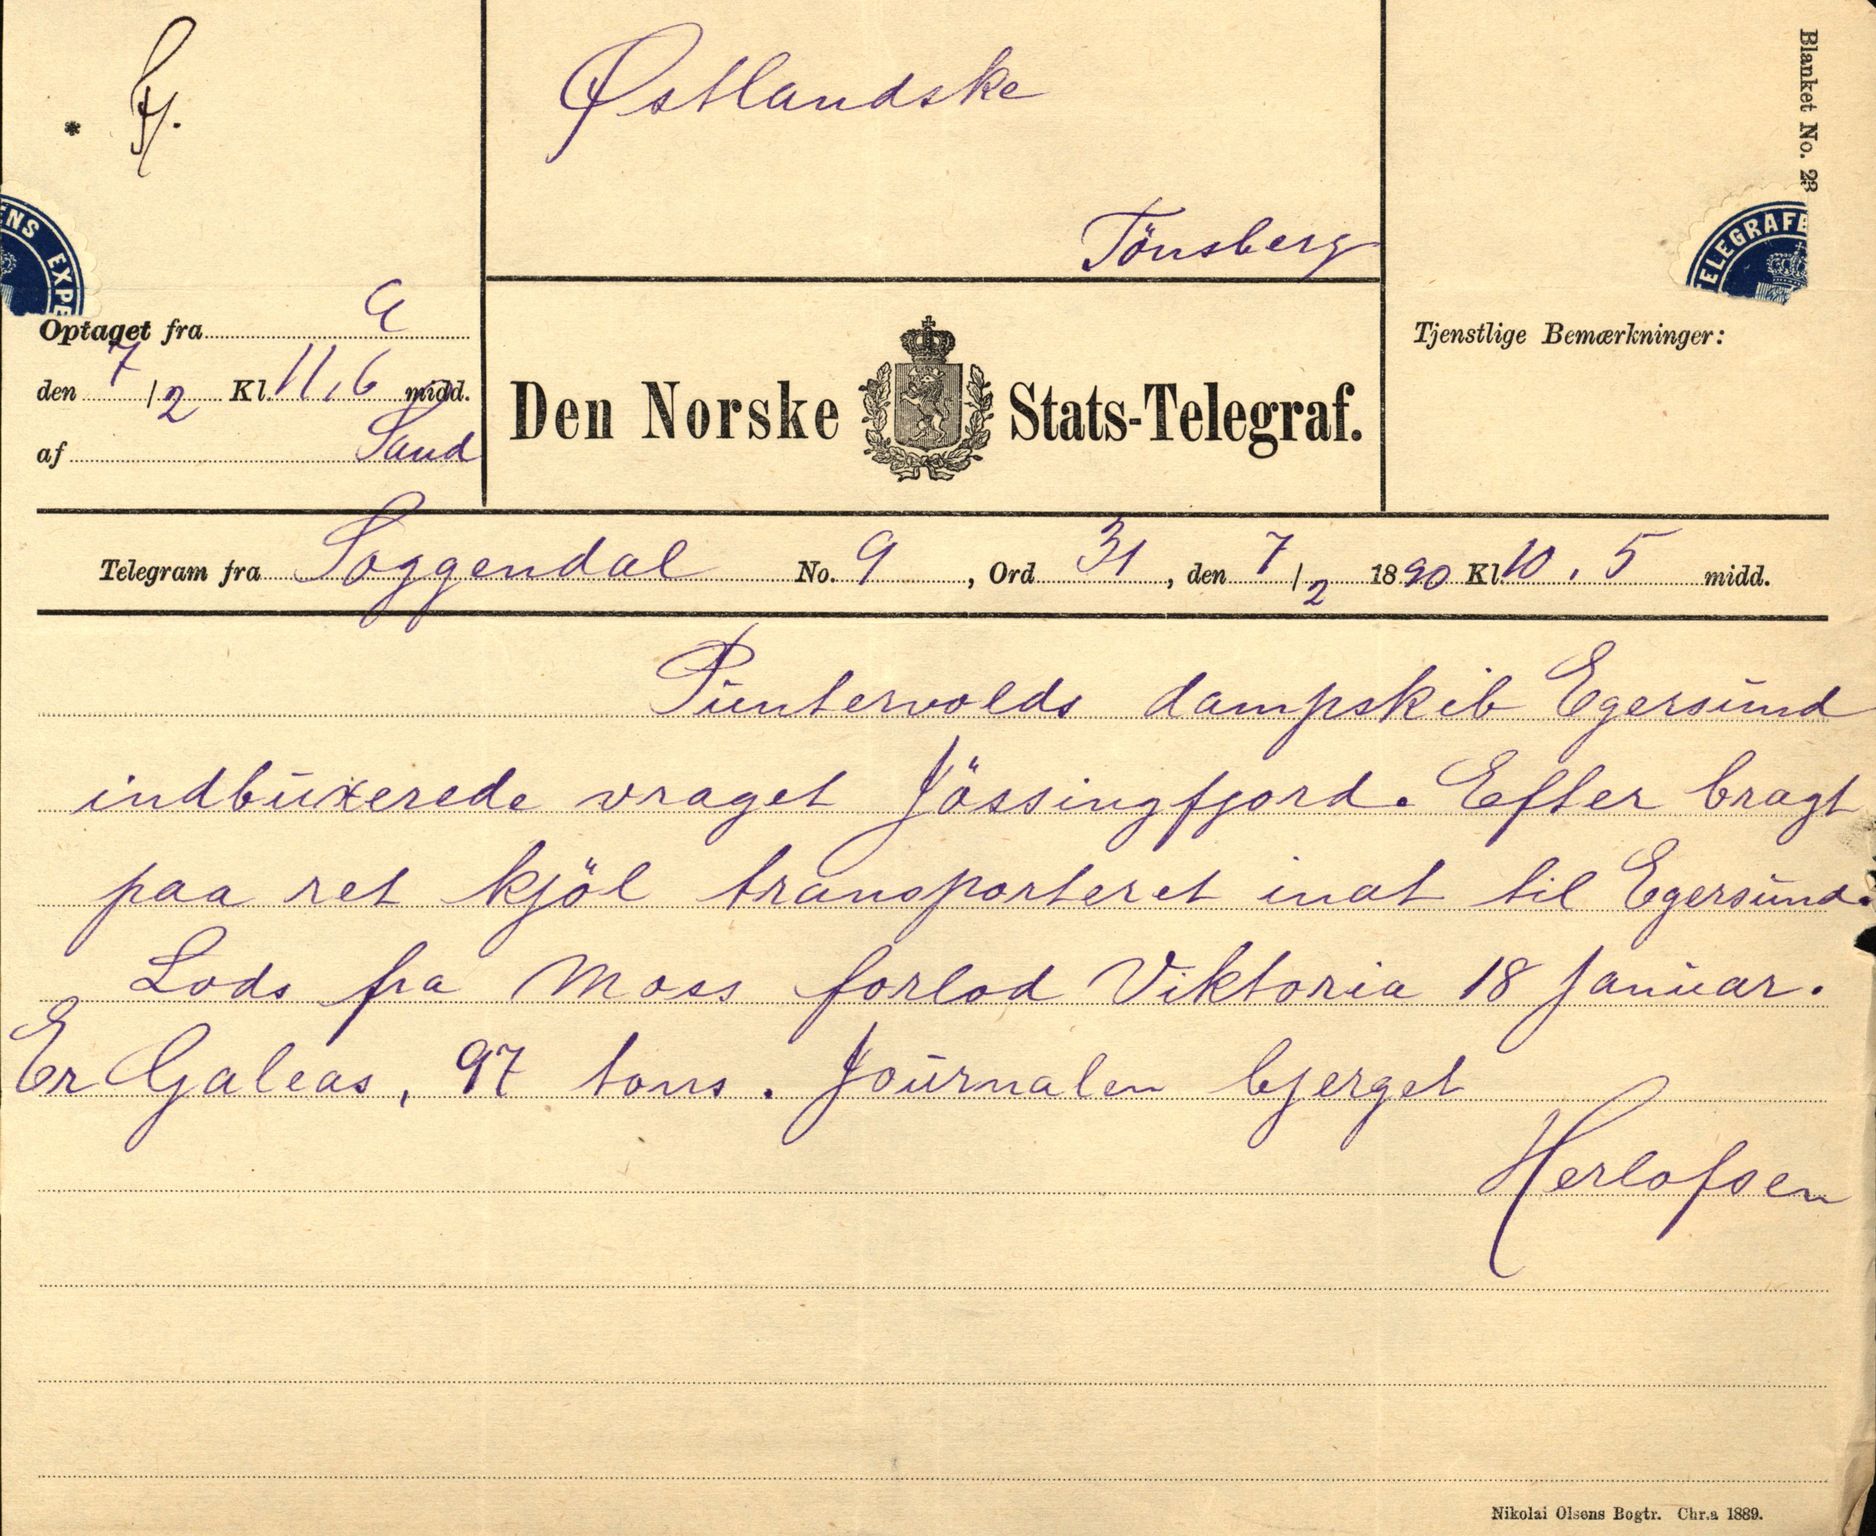 Blanket No. 23
Østlandske
Tönsberg
ENS EXPE
TELEGRAFE
Optaget fra
den 7/2 Kl. 11,6 midd.
af Sand
Den Norske Stats-Telegraf.
Tjenstlige Bemærkninger:
Telegram fra Soggendal No. 9, Ord 31, den 7/2 1890 Kl. 10.5 midd.
Puntervolds dampskib Egersund
indbuxerede vraget Jössingfjord. Efter bragt
paa ret kjöl transporteret inat til Egersund.
Lods fra Moss forlod Viktoria 18 januar.
Er Galeas, 97 tons. Journalen bjerget
Herlofsen
Nikolai Olsens Bogtr. Chr.a 1889.